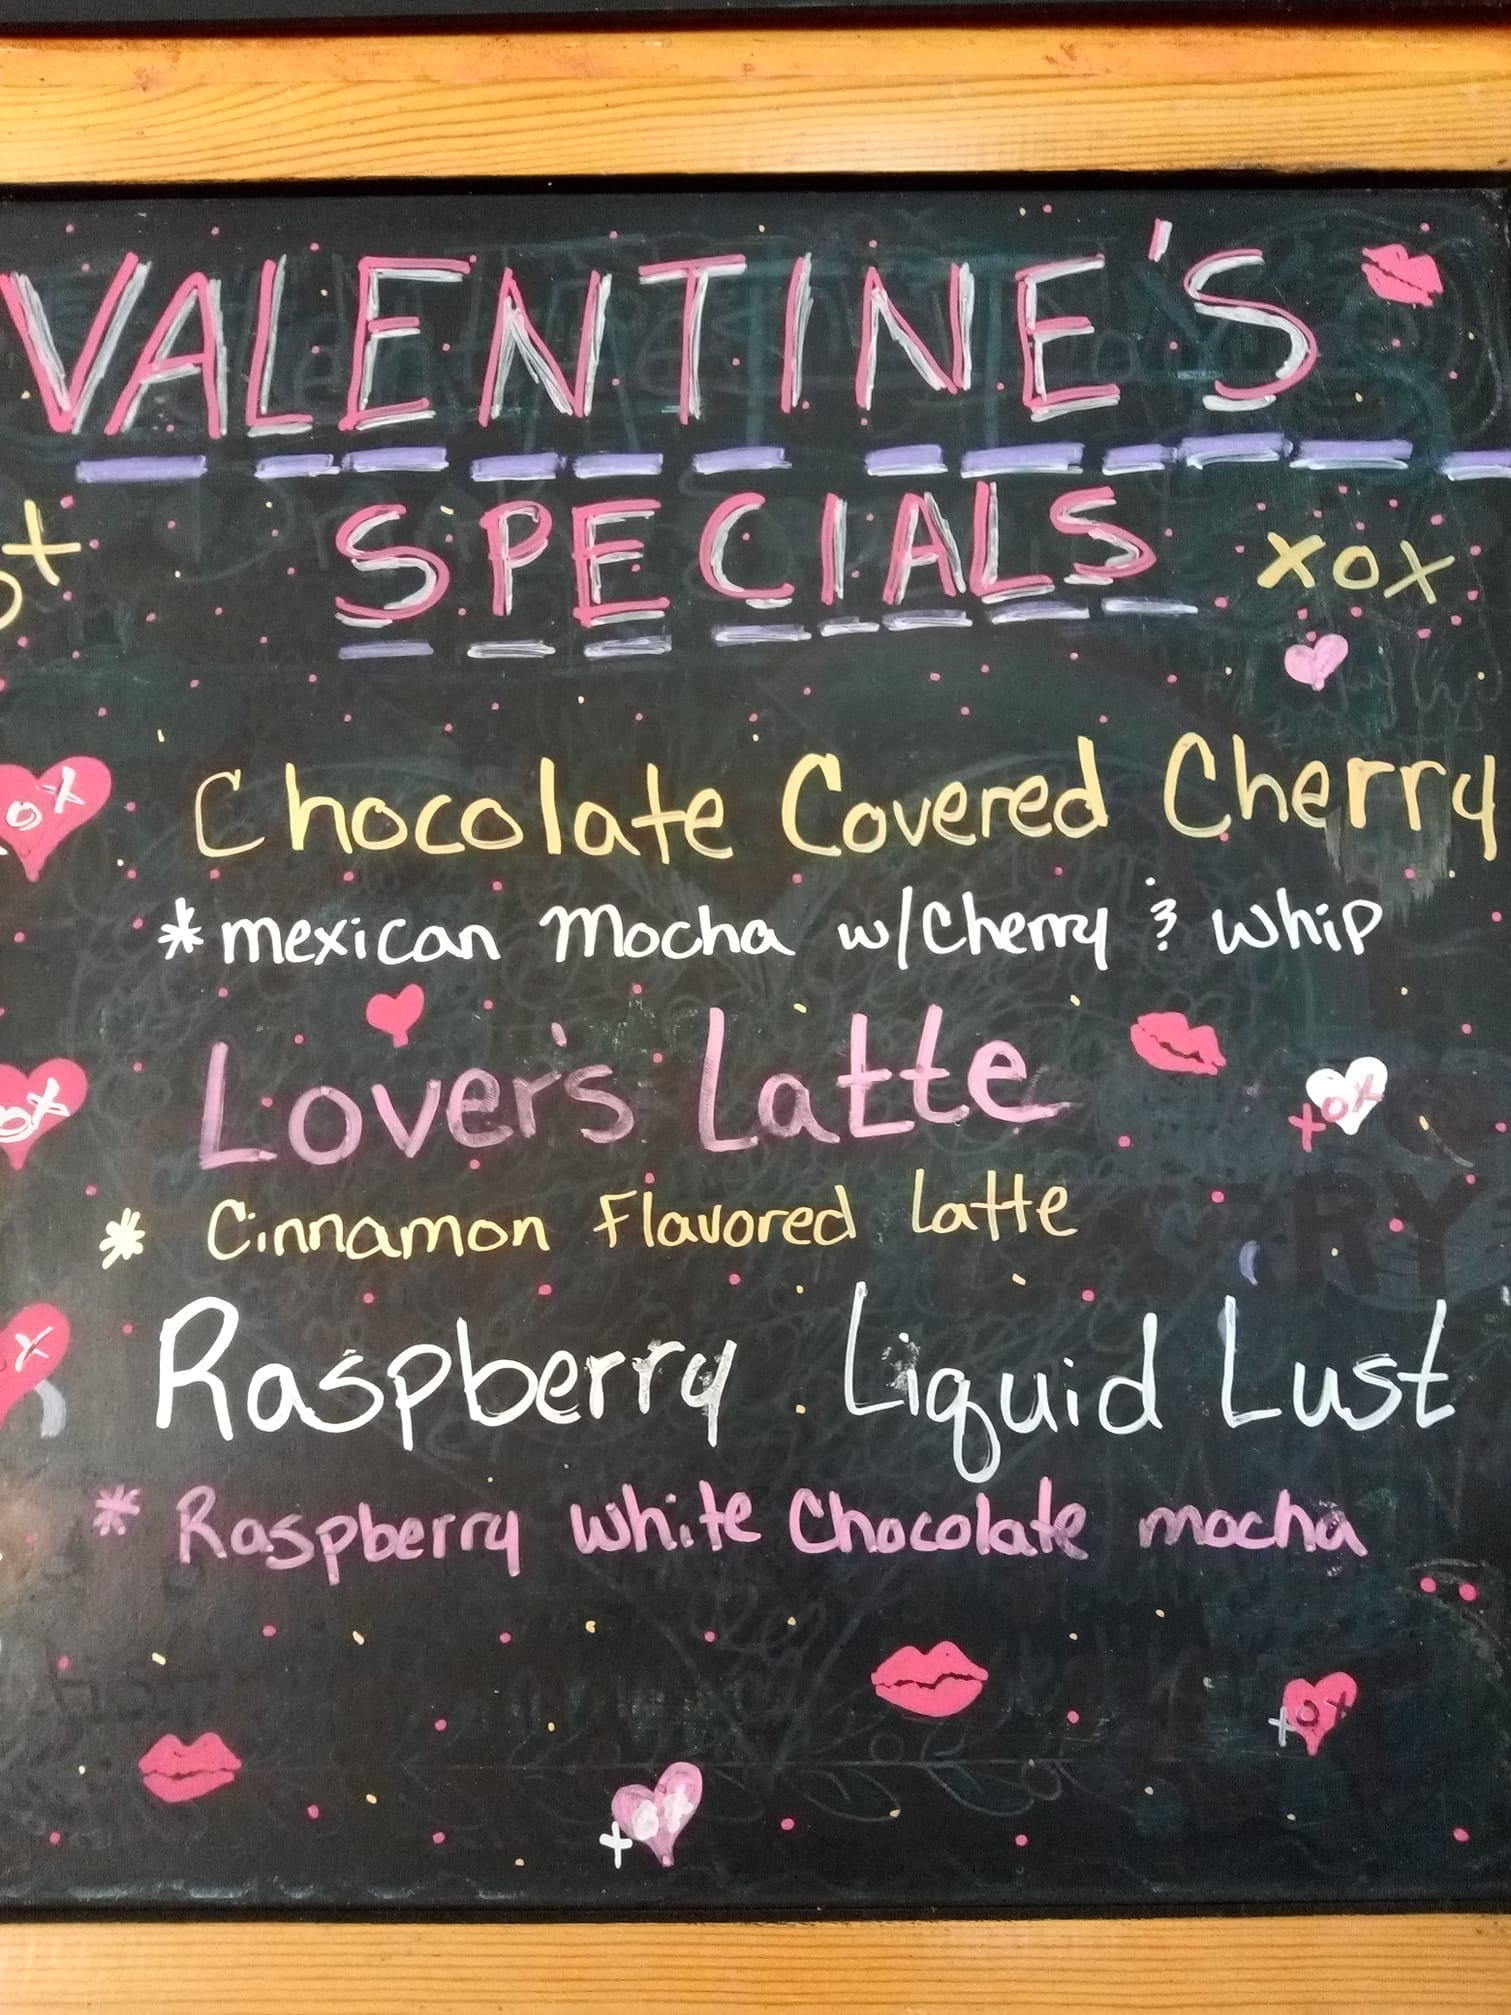 VALENTINE'S
SPECIALS
xox
Chocolate Covered Cherry
*mexican Mocha w/Cherry & whip
Lover's Latte
xox
* Cinnamon Flavored Latte
Raspberry Liquid Lust
* Raspberry White Chocolate mocha
xox
xox